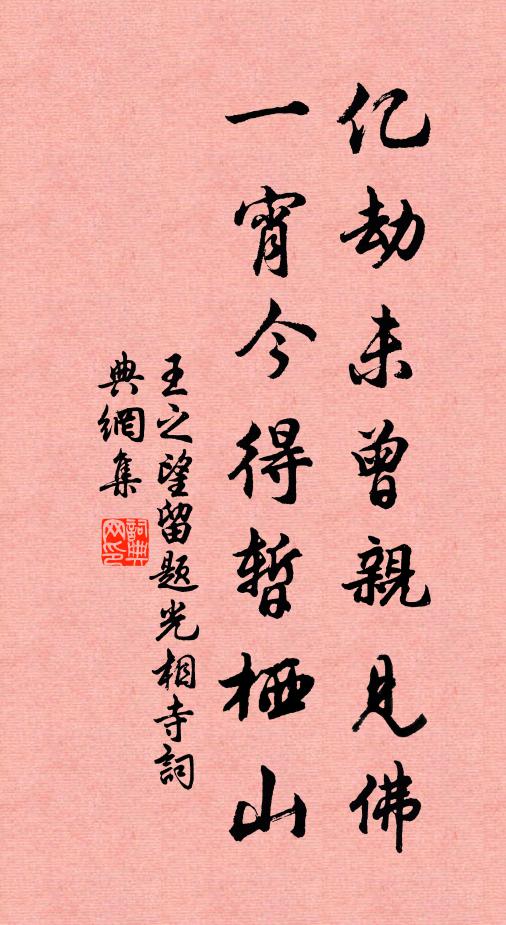 亿劫未曾親見佛
一宵今得暫栖山
王之望留题光相寺詞
典網集
詞典网印